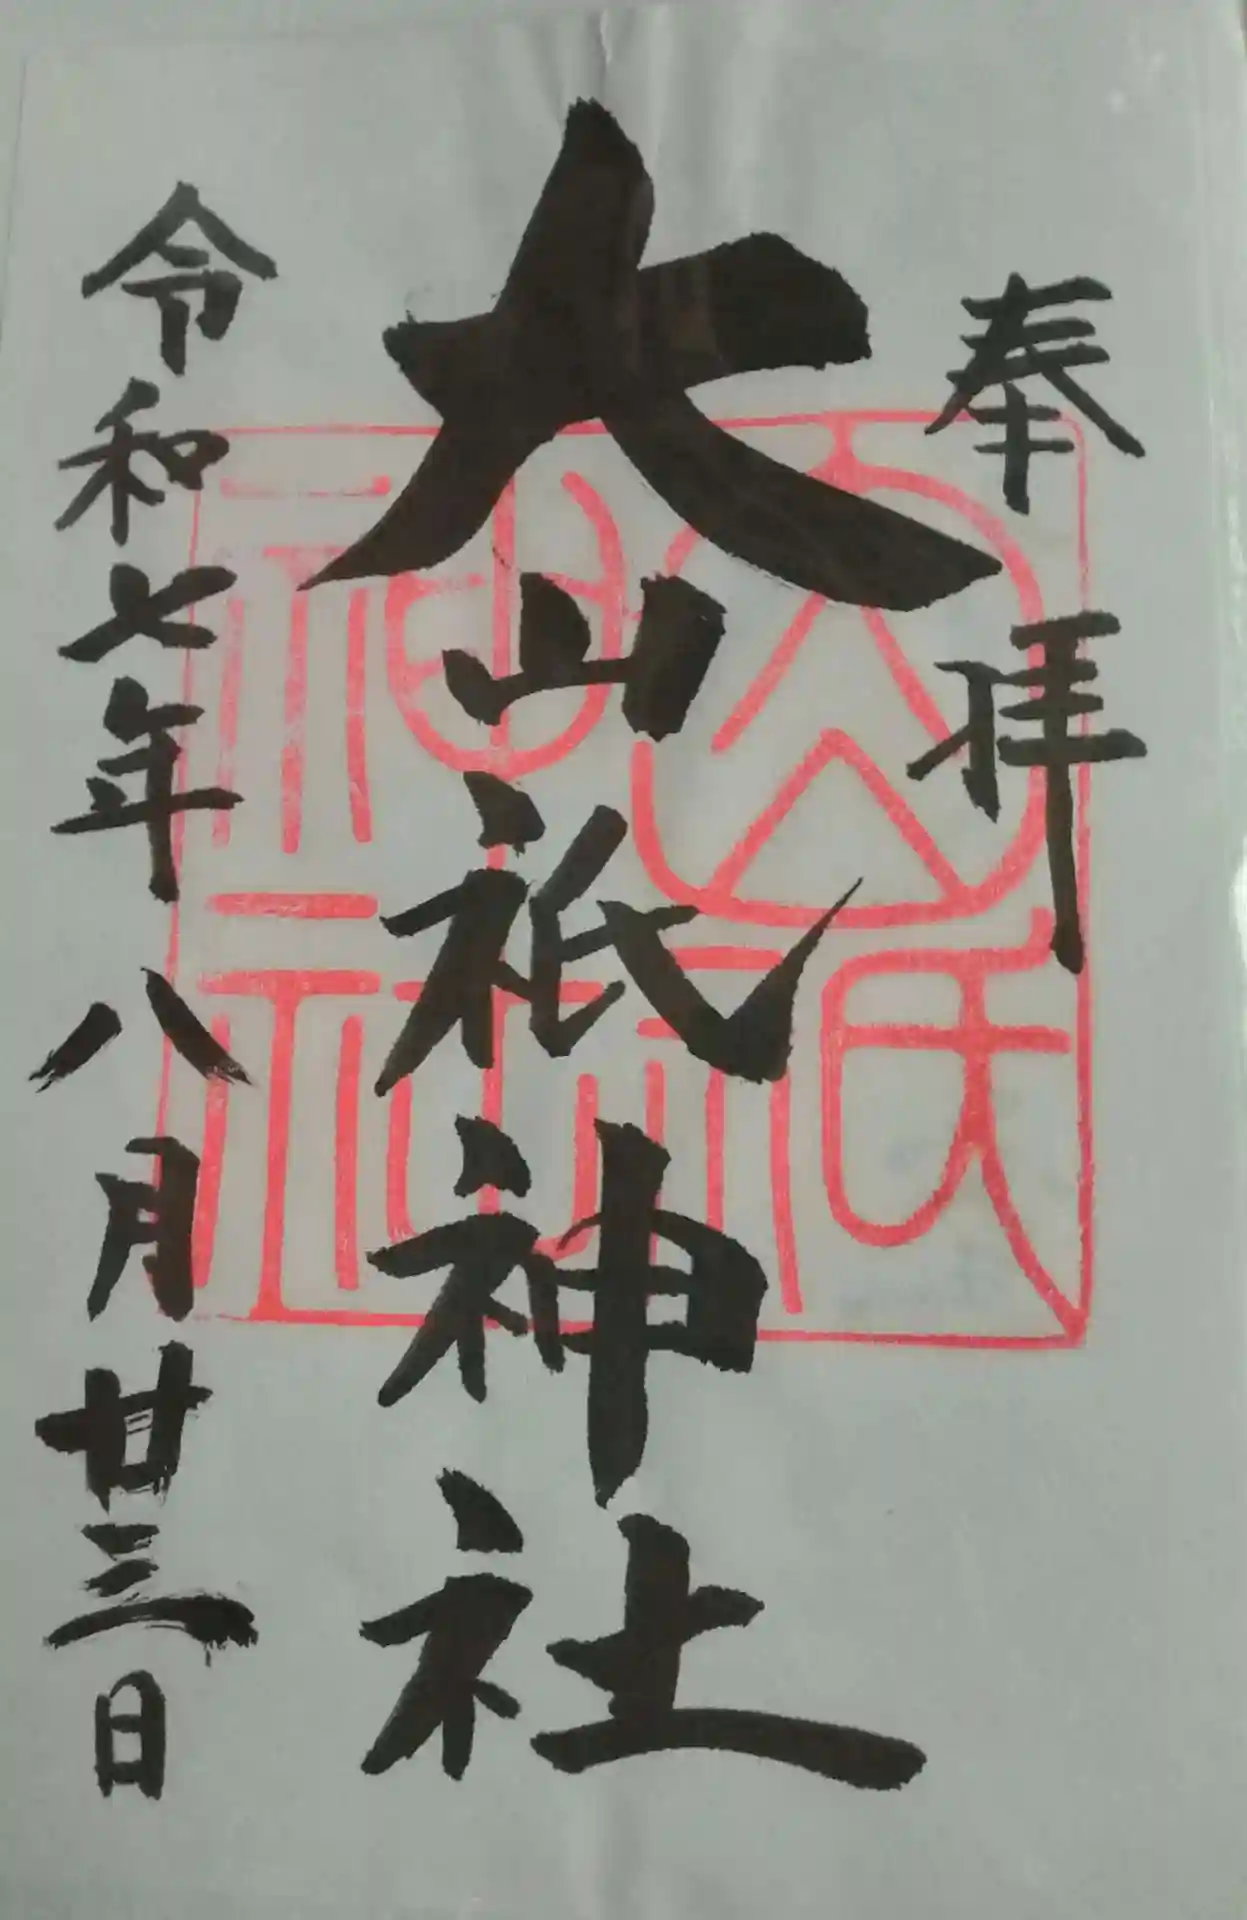 奉拝
大山祇神社
令和七年八月廿三日
大山祇
神社